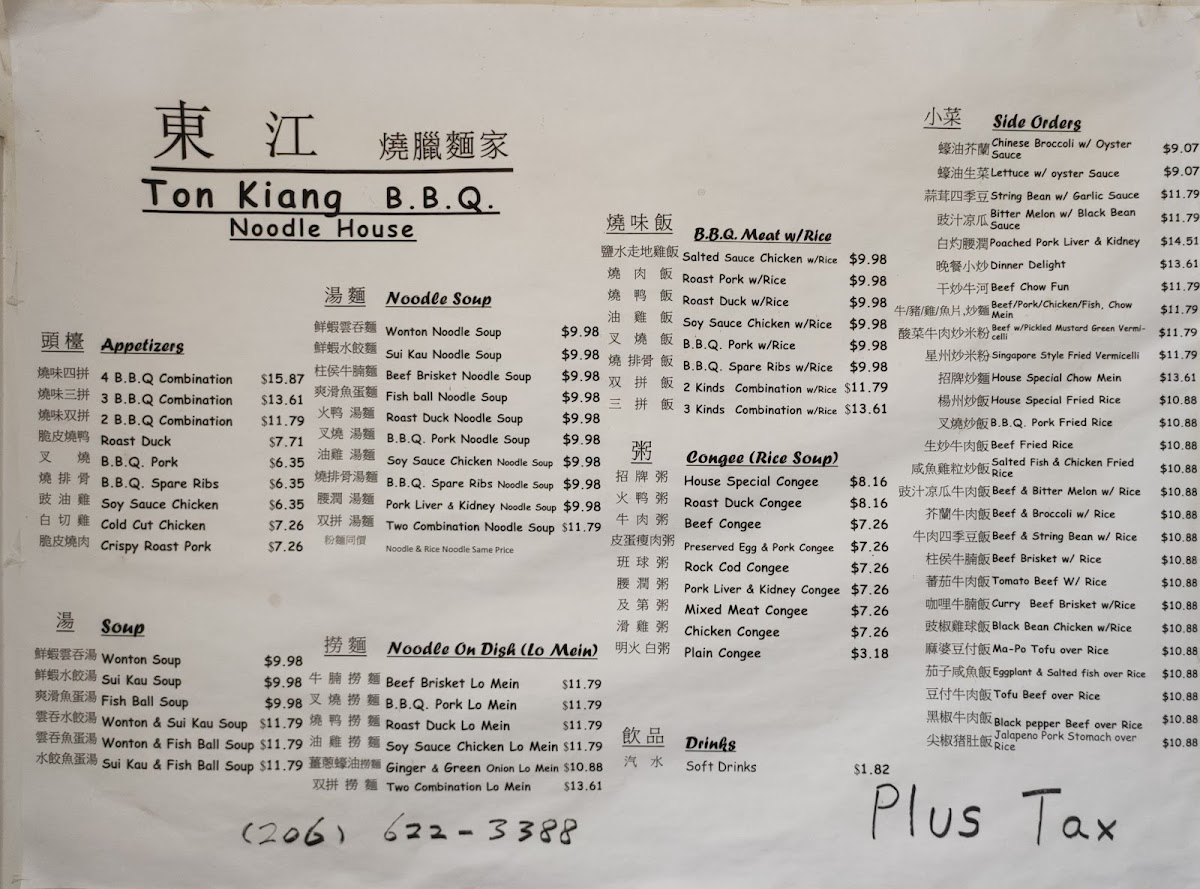 東 江 燒臘麵家
Ton Kiang B.B.Q.
Noodle House
頭檯 Appetizers
燒味四拼 4 B.B.Q Combination $15.87
燒味三拼 3 B.B.Q Combination $13.61
燒味双拼 2 B.B.Q Combination $11.79
脆皮燒鸭 Roast Duck $7.71
叉 燒 B.B.Q. Pork $6.35
燒 排 骨 B.B.Q. Spare Ribs $6.35
豉 油 雞 Soy Sauce Chicken $6.35
白 切 雞 Cold Cut Chicken $7.26
脆皮燒肉 Crispy Roast Pork $7.26
湯 Soup
鮮蝦雲吞湯 Wonton Soup $9.98
鮮蝦水餃湯 Sui Kau Soup $9.98
爽滑魚蛋湯 Fish Ball Soup $9.98
雲吞水餃湯 Wonton & Sui Kau Soup $11.79
雲吞魚蛋湯 Wonton & Fish Ball Soup $11.79
水餃魚蛋湯 Sui Kau & Fish Ball Soup $11.79
湯 麵 Noodle Soup
鮮蝦雲吞麵 Wonton Noodle Soup $9.98
鮮蝦水餃麵 Sui Kau Noodle Soup $9.98
柱侯牛腩麵 Beef Brisket Noodle Soup $9.98
爽滑魚蛋麵 Fish ball Noodle Soup $9.98
火鸭 湯麵 Roast Duck Noodle Soup $9.98
叉燒 湯麵 B.B.Q. Pork Noodle Soup $9.98
油雞 湯麵 Soy Sauce Chicken Noodle Soup $9.98
燒排骨湯麵 B.B.Q. Spare Ribs Noodle Soup $9.98
腰潤 湯麵 Pork Liver & Kidney Noodle Soup $9.98
双拼 湯麵 Two Combination Noodle Soup $11.79
粉麵同價 Noodle & Rice Noodle Same Price
撈 麵 Noodle On Dish (Lo Mein)
牛 腩 撈 麵 Beef Brisket Lo Mein $11.79
叉 燒 撈 麵 B.B.Q. Pork Lo Mein $11.79
燒 鸭 撈 麵 Roast Duck Lo Mein $11.79
油 雞 撈 麵 Soy Sauce Chicken Lo Mein $11.79
薑蔥蠔油撈麵 Ginger & Green Onion Lo Mein $10.88
双拼 撈 麵 Two Combination Lo Mein $13.61
燒 味 飯 B.B.Q. Meat w/Rice
鹽水走地雞飯 Salted Sauce Chicken w/Rice $9.98
燒 肉 飯 Roast Pork w/Rice $9.98
燒 鸭 飯 Roast Duck w/Rice $9.98
油 雞 飯 Soy Sauce Chicken w/Rice $9.98
叉 燒 飯 B.B.Q. Pork w/Rice $9.98
燒 排骨 飯 B.B.Q. Spare Ribs w/Rice $9.98
双 拼 飯 2 Kinds Combination w/Rice $11.79
三 拼 飯 3 Kinds Combination w/Rice $13.61
粥 Congee (Rice Soup)
招 牌 粥 House Special Congee $8.16
火 鸭 粥 Roast Duck Congee $8.16
牛 肉 粥 Beef Congee $7.26
皮蛋瘦肉粥 Preserved Egg & Pork Congee $7.26
班 球 粥 Rock Cod Congee $7.26
腰 潤 粥 Pork Liver & Kidney Congee $7.26
及 第 粥 Mixed Meat Congee $7.26
滑 雞 粥 Chicken Congee $7.26
明火 白粥 Plain Congee $3.18
飲 品 Drinks
汽 水 Soft Drinks $1.82
小菜 Side Orders
蠔油芥蘭 Chinese Broccoli w/ Oyster
Sauce $9.07
蠔油生菜 Lettuce w/ oyster Sauce $9.07
蒜茸四季豆 String Bean w/ Garlic Sauce $11.79
豉汁凉瓜 Bitter Melon w/ Black Bean
Sauce $11.79
白灼腰潤 Poached Pork Liver & Kidney $14.51
晚餐小炒 Dinner Delight $13.61
干炒牛河 Beef Chow Fun $11.79
牛/豬/雞/魚片,炒麵 Beef/Pork/Chicken/Fish, Chow
Mein $11.79
酸菜牛肉炒米粉 Beef w/Pickled Mustard Green Vermi-
celli $11.79
星州炒米粉 Singapore Style Fried Vermicelli $11.79
招牌炒麵 House Special Chow Mein $13.61
楊州炒飯 House Special Fried Rice $10.88
叉燒炒飯 B.B.Q. Pork Fried Rice $10.88
生炒牛肉飯 Beef Fried Rice $10.88
咸魚雞粒炒飯 Salted Fish & Chicken Fried
Rice $10.88
豉汁凉瓜牛肉飯 Beef & Bitter Melon w/ Rice $10.88
芥蘭牛肉飯 Beef & Broccoli w/ Rice $10.88
牛肉四季豆飯 Beef & String Bean w/ Rice $10.88
柱侯牛腩飯 Beef Brisket w/ Rice $10.88
蕃茄牛肉飯 Tomato Beef W/ Rice $10.88
咖哩牛腩飯 Curry Beef Brisket w/Rice $10.88
豉椒雞球飯 Black Bean Chicken w/Rice $10.88
麻婆豆付飯 Ma-Po Tofu over Rice $10.88
茄子咸魚飯 Eggplant & Salted fish over Rice $10.88
豆付牛肉飯 Tofu Beef over Rice $10.88
黑椒牛肉飯 Black pepper Beef over Rice $10.88
尖椒猪肚飯 Jalapeno Pork Stomach over
Rice $10.88
(206) 622-3388
Plus Tax